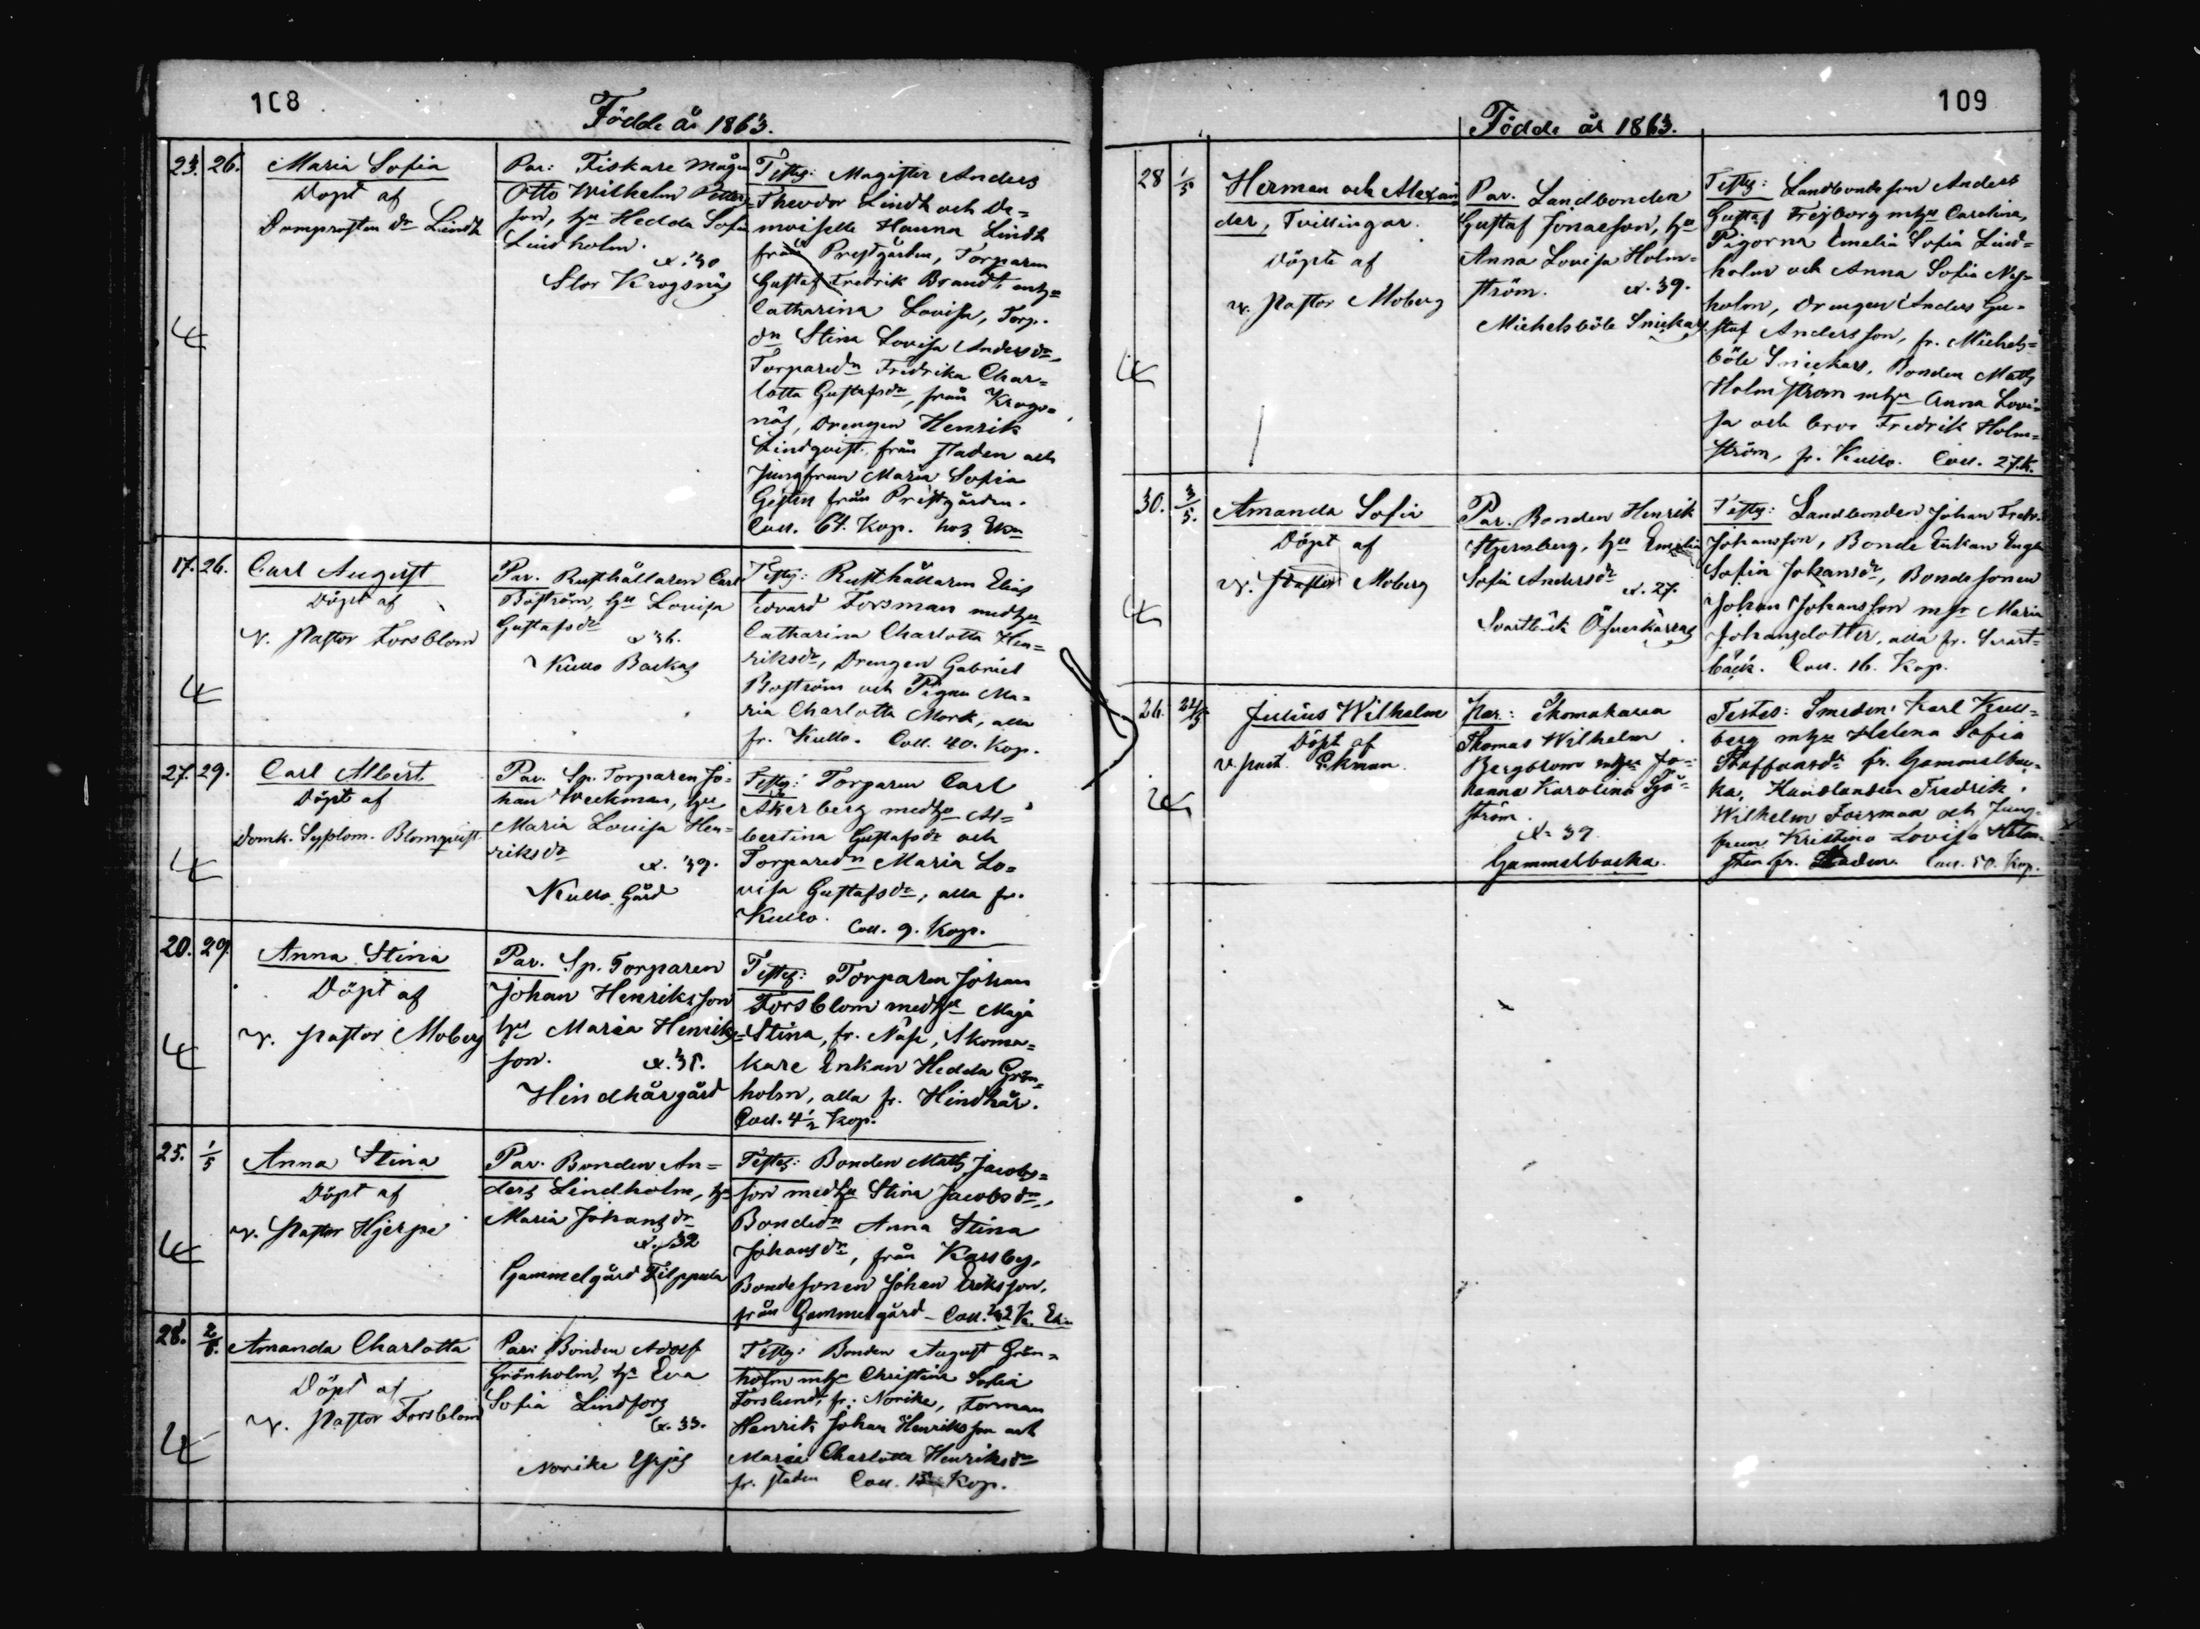 108
Födde år 1863.
23. 26. Maria Sofia
Döpt af
Domprosten Dr Lindh
Par: Fiskare Mågen
Otto Wilhelm Petters-
son, hu Hedda Sofia
Lindholm.
x. 30
Stor Krogsnäs
Testes: Magister Anders
Theodor Lindh och De-
moiselle Hanna Lindh
från Prestgården, Torparen
Gustaf Fredrik Brandt mhu
Catharina Lovisa, Torp.
dn Stina Lovisa Andersdr,
Torparedn Fredrika Char-
lotta Gustafsdr, från Krogs-
näs, Drengen Henrik
Lindqvist från staden och
Jungfrun Maria Sofia
från Prestgården.
Coll. 64. Kop. hos
17. 26. Carl August
Döpt af
v. Pastor Forsblom
Par. Rusthållaren Carl
Boström, hu Lovisa
Gustafsdr
x 36.
Kullo Backas
Testes: Rusthållaren Elias
Edvard Forsman medhu
Catharina Charlotta Hen-
riksdr, Drengen Gabriel
Boström och Pigan Ma-
ria Charlotta Mork, alla
fr. Kullo. Coll. 40. Kop.
27. 29. Carl Albert.
Döpt af
Domk. Syslom. Blomqvist
Par. Sp. Torparen Jo-
han Weckman, hu
Maria Lovisa Hen-
riksdr
x. 39.
Kullo Gård
Testes: Torparen Carl
Åkerberg medhu Al-
bertina Gustafsdr och
Torparedn Maria Lo-
visa Gustafsdr, alla fr.
Kullo. Coll. 9. Kop.
20. 29. Anna Stina
Döpt af
v. Pastor Moberg
Par. Sp. Torparen
Johan Henriksson
hu Maria Henriks-
son. x. 38.
Hindhårgård
Testes: Torparen Johan
Forsblom medhu Maja
Stina, fr. Näse, Skoma-
kare Enkan Hedda Grön-
holm, alla fr. Hindhår.
Coll. 4 1/2 Kop.
25. 1/5 Anna Stina
Döpt af
v. Pastor Hjerpe
Par. Bonden An-
ders Lindholm, hu
Maria Johansdr
x. 32
Gammelgård Filppula
Testes: Bonden Mats Jacobs-
son medhu Stina Jacobsdr,
Bondedn Anna Stina
Johansdr, från Karsby,
Bondesonen Johan Eriksson,
från Gammelgård - Coll.
28. 2/5. Amanda Charlotta
Döpt af
v. Pastor Forsblom
Par: Bonden Adolf
Grönholm, hu Eva
Sofia Lindfors
x. 33.
Norike
Testes: Bonden August Grön-
holm mhu Christina Sofia
Forslund, fr. Norike, Forman
Henrik Johan Henriksson och
Maria Charlotta Henriksdr
fr. staden Coll. Kop.
109
Födde år 1863.
28 1/5 Herman och Alexan-
der, Tvillingar.
Döpte af
v. Pastor Moberg
Par. Landbonden
Gustaf Jonasson, hu
Anna Lovisa Holm-
ström. x. 39.
Michelsböle Snickars
Testes: Landbondeson Anders
Gustaf Frejborg mhu Carolina,
Pigorna Emelia Sofia Lind-
holm och Anna Sofia Nys-
holm, Drengen Anders Gu-
staf Andersson, fr. Michels-
böle Snickars, Bonden Mats
Holmström mhu Anna Lovi-
sa och bror Fredrik Holm-
ström, fr. Kullo. Coll. 27. K.
30. 3/5. Amanda Sofia
Döpt af
v. Pastor Moberg
Par. Bonden Henrik
Stjernberg, hu Emelia
Sofia Andersdr
x. 27.
Svartbäck
Testes: Landbonden Johan Fredr.
Johansson, Bonde Enkan
Sofia Johansdr, Bondesonen
Johan Johansson mhu Maria
Johansdotter, alla fr. Svart-
bäck. Coll. 16. Kop.
26. Julius Wilhelm
Döpt af
v. past. Ekman
Par: Skomakaren
Thomas Wilhelm
Bergblom mhu Jo-
hanna Karolina Sjö-
ström.
x. 39
Gammelbacka.
Testes: Smeden Karl Kull-
berg mhu Helena Sofia
Staffansdr fr. Gammelbac-
ka, Handlanden Fredrik
Wilhelm Forsman och Jung-
frun Kristina Lovisa
fr. Staden. Coll. 50. Kop.